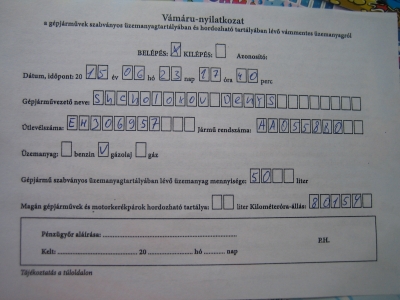 Vámáru-nyilatkozat
a gépjárművek szabványos üzemanyagtartályában és hordozható tartályában lévő vámmentes üzemanyagról
BELÉPÉS: X KILÉPÉS: Azonosító:
Dátum, időpont: 2015 év 06 hó 23 nap 17 óra 40 perc
Gépjárművezető neve: Shcholokov Denys
Útlevélszáma: EH306957 Jármű rendszáma: AA0558
Üzemanyag: benzin V gázolaj gáz
Gépjármű szabványos üzemanyagtartályában lévő üzemanyag mennyisége: 50 liter
Magán gépjárművek és motorkerékpárok hordozható tartálya: liter Kilométeróra-állás: 80154
Pénzügyőr aláírása:
P.H.
Kelt: 20 hó nap
Tájékoztatás a túloldalon